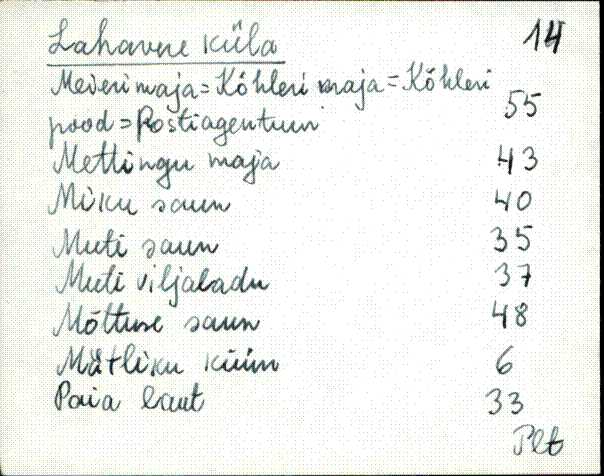 Lahavere küla 14
Meieri maja = Kõhleri maja = Kõhleri
pood = Postiagentuur 55
Mettingu maja 43
Miku saun 40
Muti saun 35
Muti viljaladu 37
Mõttuse saun 48
Mätliku küün 6
Paia laut 33
Plt